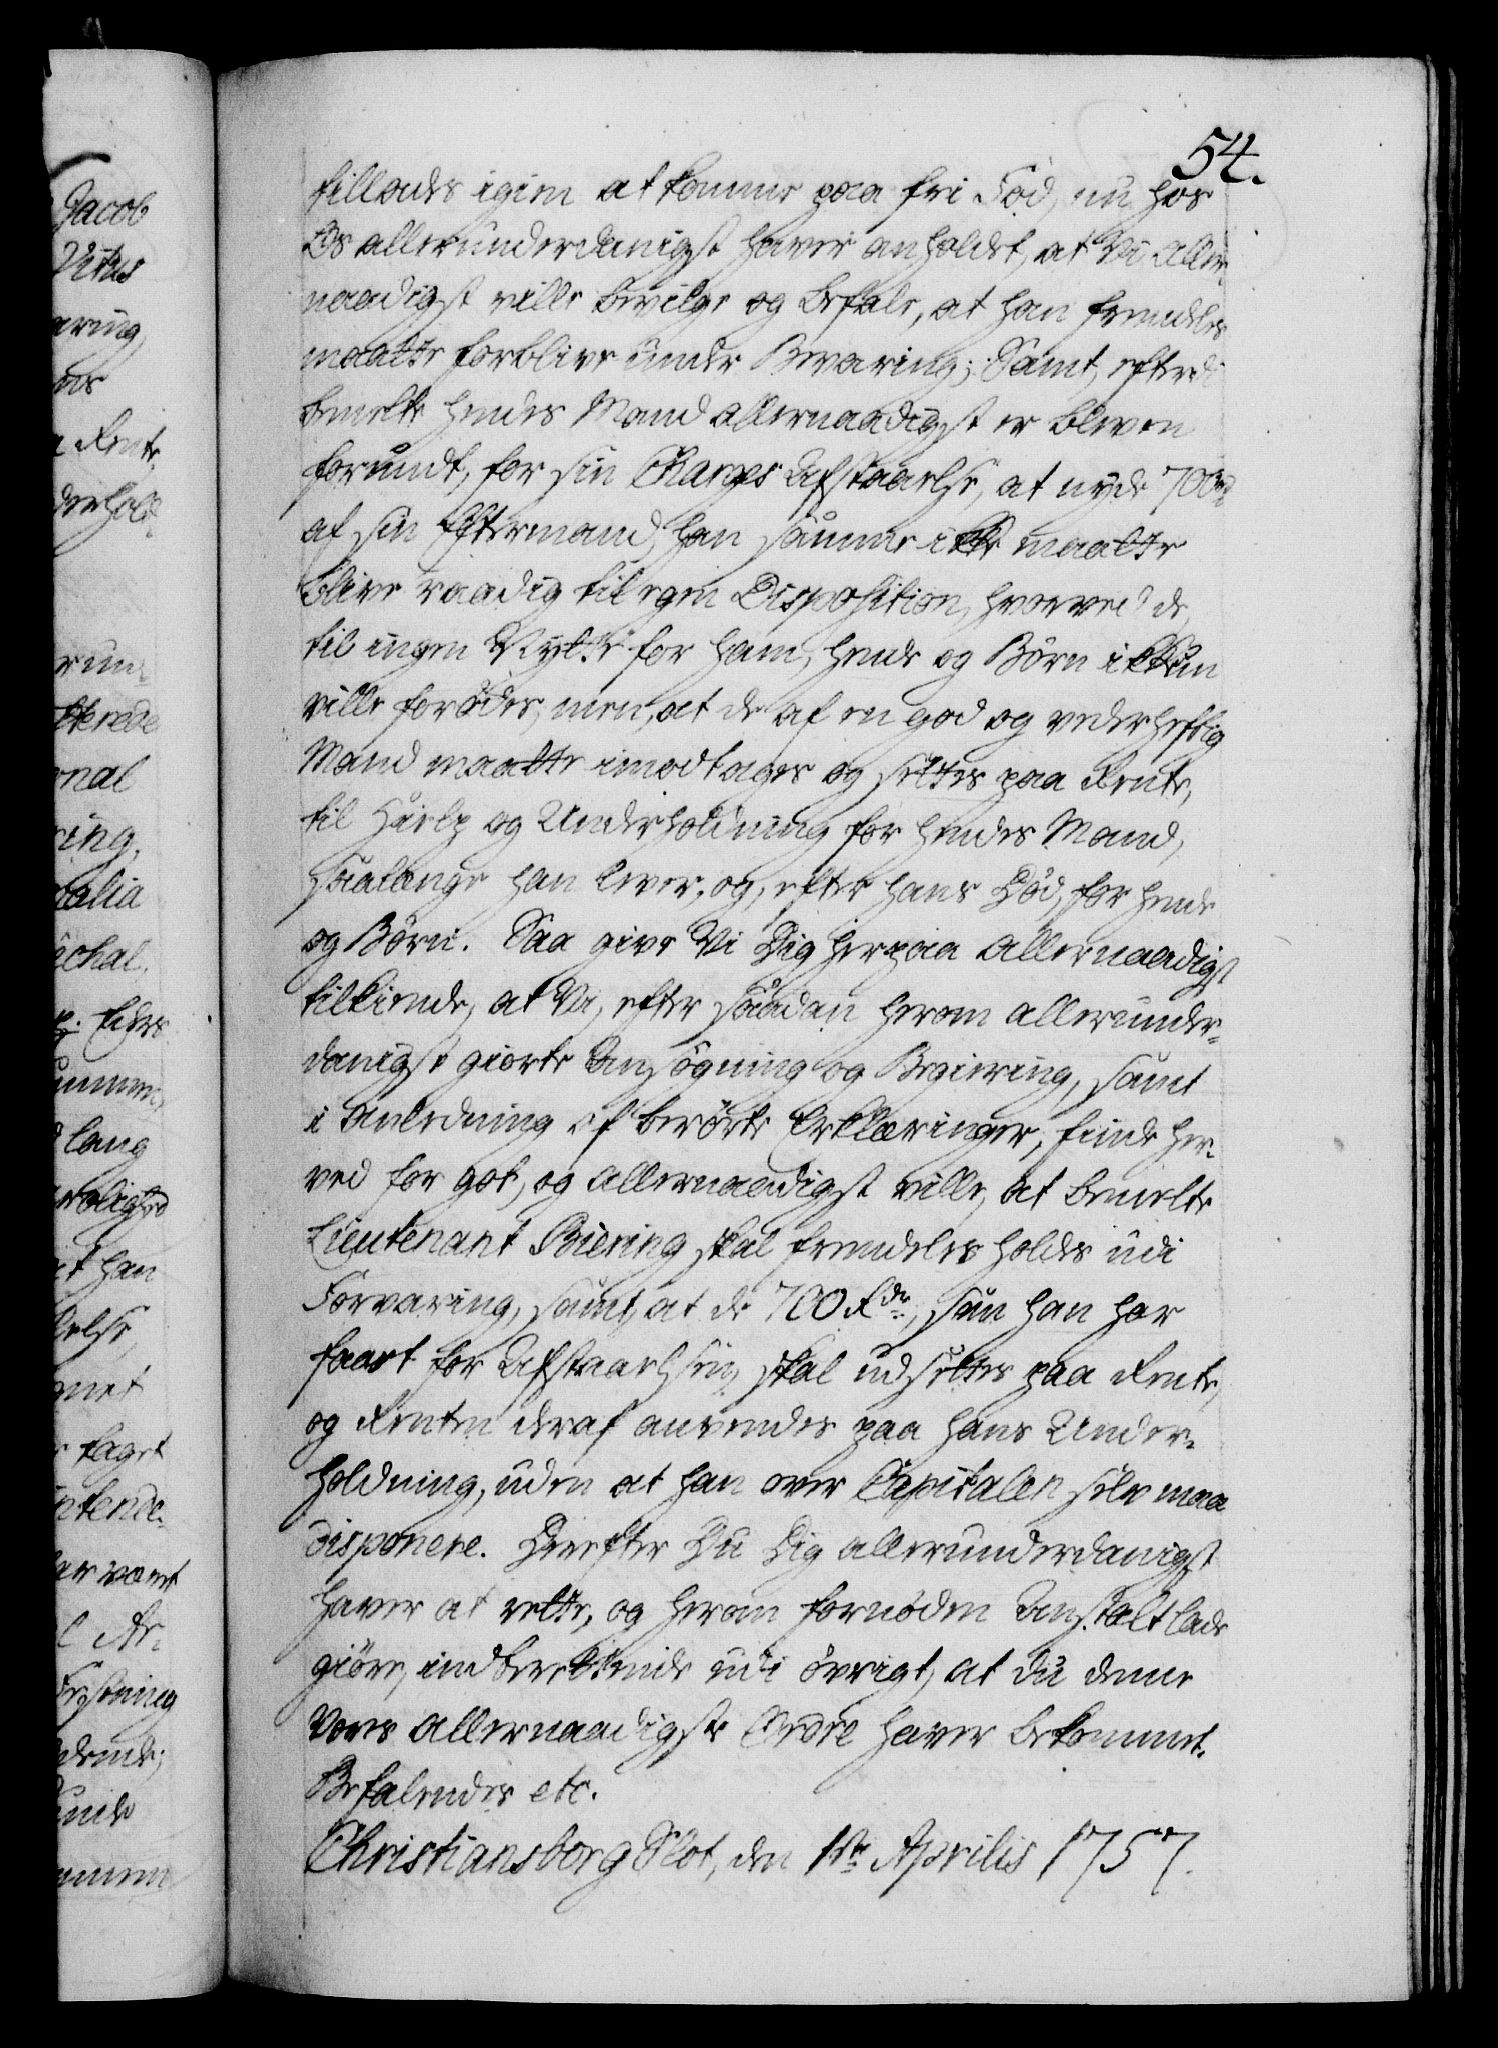 54.
tillades igien at komme paa fri Fod, nu hos
Os allerunderdanigst haver anholdet, at Vi Aller-
naadigst ville bevilge og befale, at han fremdeles
maatte forblive under Bevaring; Samt, efterdi
bemelte hendes Mand allernaadigst er bleven
forundt, for sin Charges Afstaaelse, at nyde 700 rd
af sin Eftermand, han samme ikke maatte
blive raadig til egen Disposition, hvorved de,
til ingen Nytte for ham, hende og Børn ikkun
ville forødes, men, at de af en god og vederheftig
Mand maatte imodtages og settes paa Rente,
til Hielp og Underholdning for hendes Mand,
saalenge han lever, og, efter hans Død, for hende
og Børn. Saa give Vi Dig herpaa allernaadigst
tilkiende, at Vi, efter saadan herom allerunder-
danigst giorte Ansøgning og Begiering, samt
i Anledning af berørte Erklæringer, finde her-
ved for got, og allernaadigst ville, at bemelte
Lieutenant Biering skal fremdeles holdes udi
Forvaring, samt, at de 700 Rdr, som han har
faaet for Afstaaelsen, skal udsettes paa Rente,
og Renten deraf anvendes paa hans Under-
holdning, uden at han over Capitalen selv maa
disponere. Derefter Du Dig allerunderdanigst
haver at rette, og herom fornøden Anstalt lade
giøre, indberettende udi øvrigt, at du denne
Vores allernaadigste Ordre haver bekommet.
Befalendes etc.
Christiansborg Slot, den 1ste Aprilis 1757.
Jacob
Vitus
Rente,
lang
at han
taget